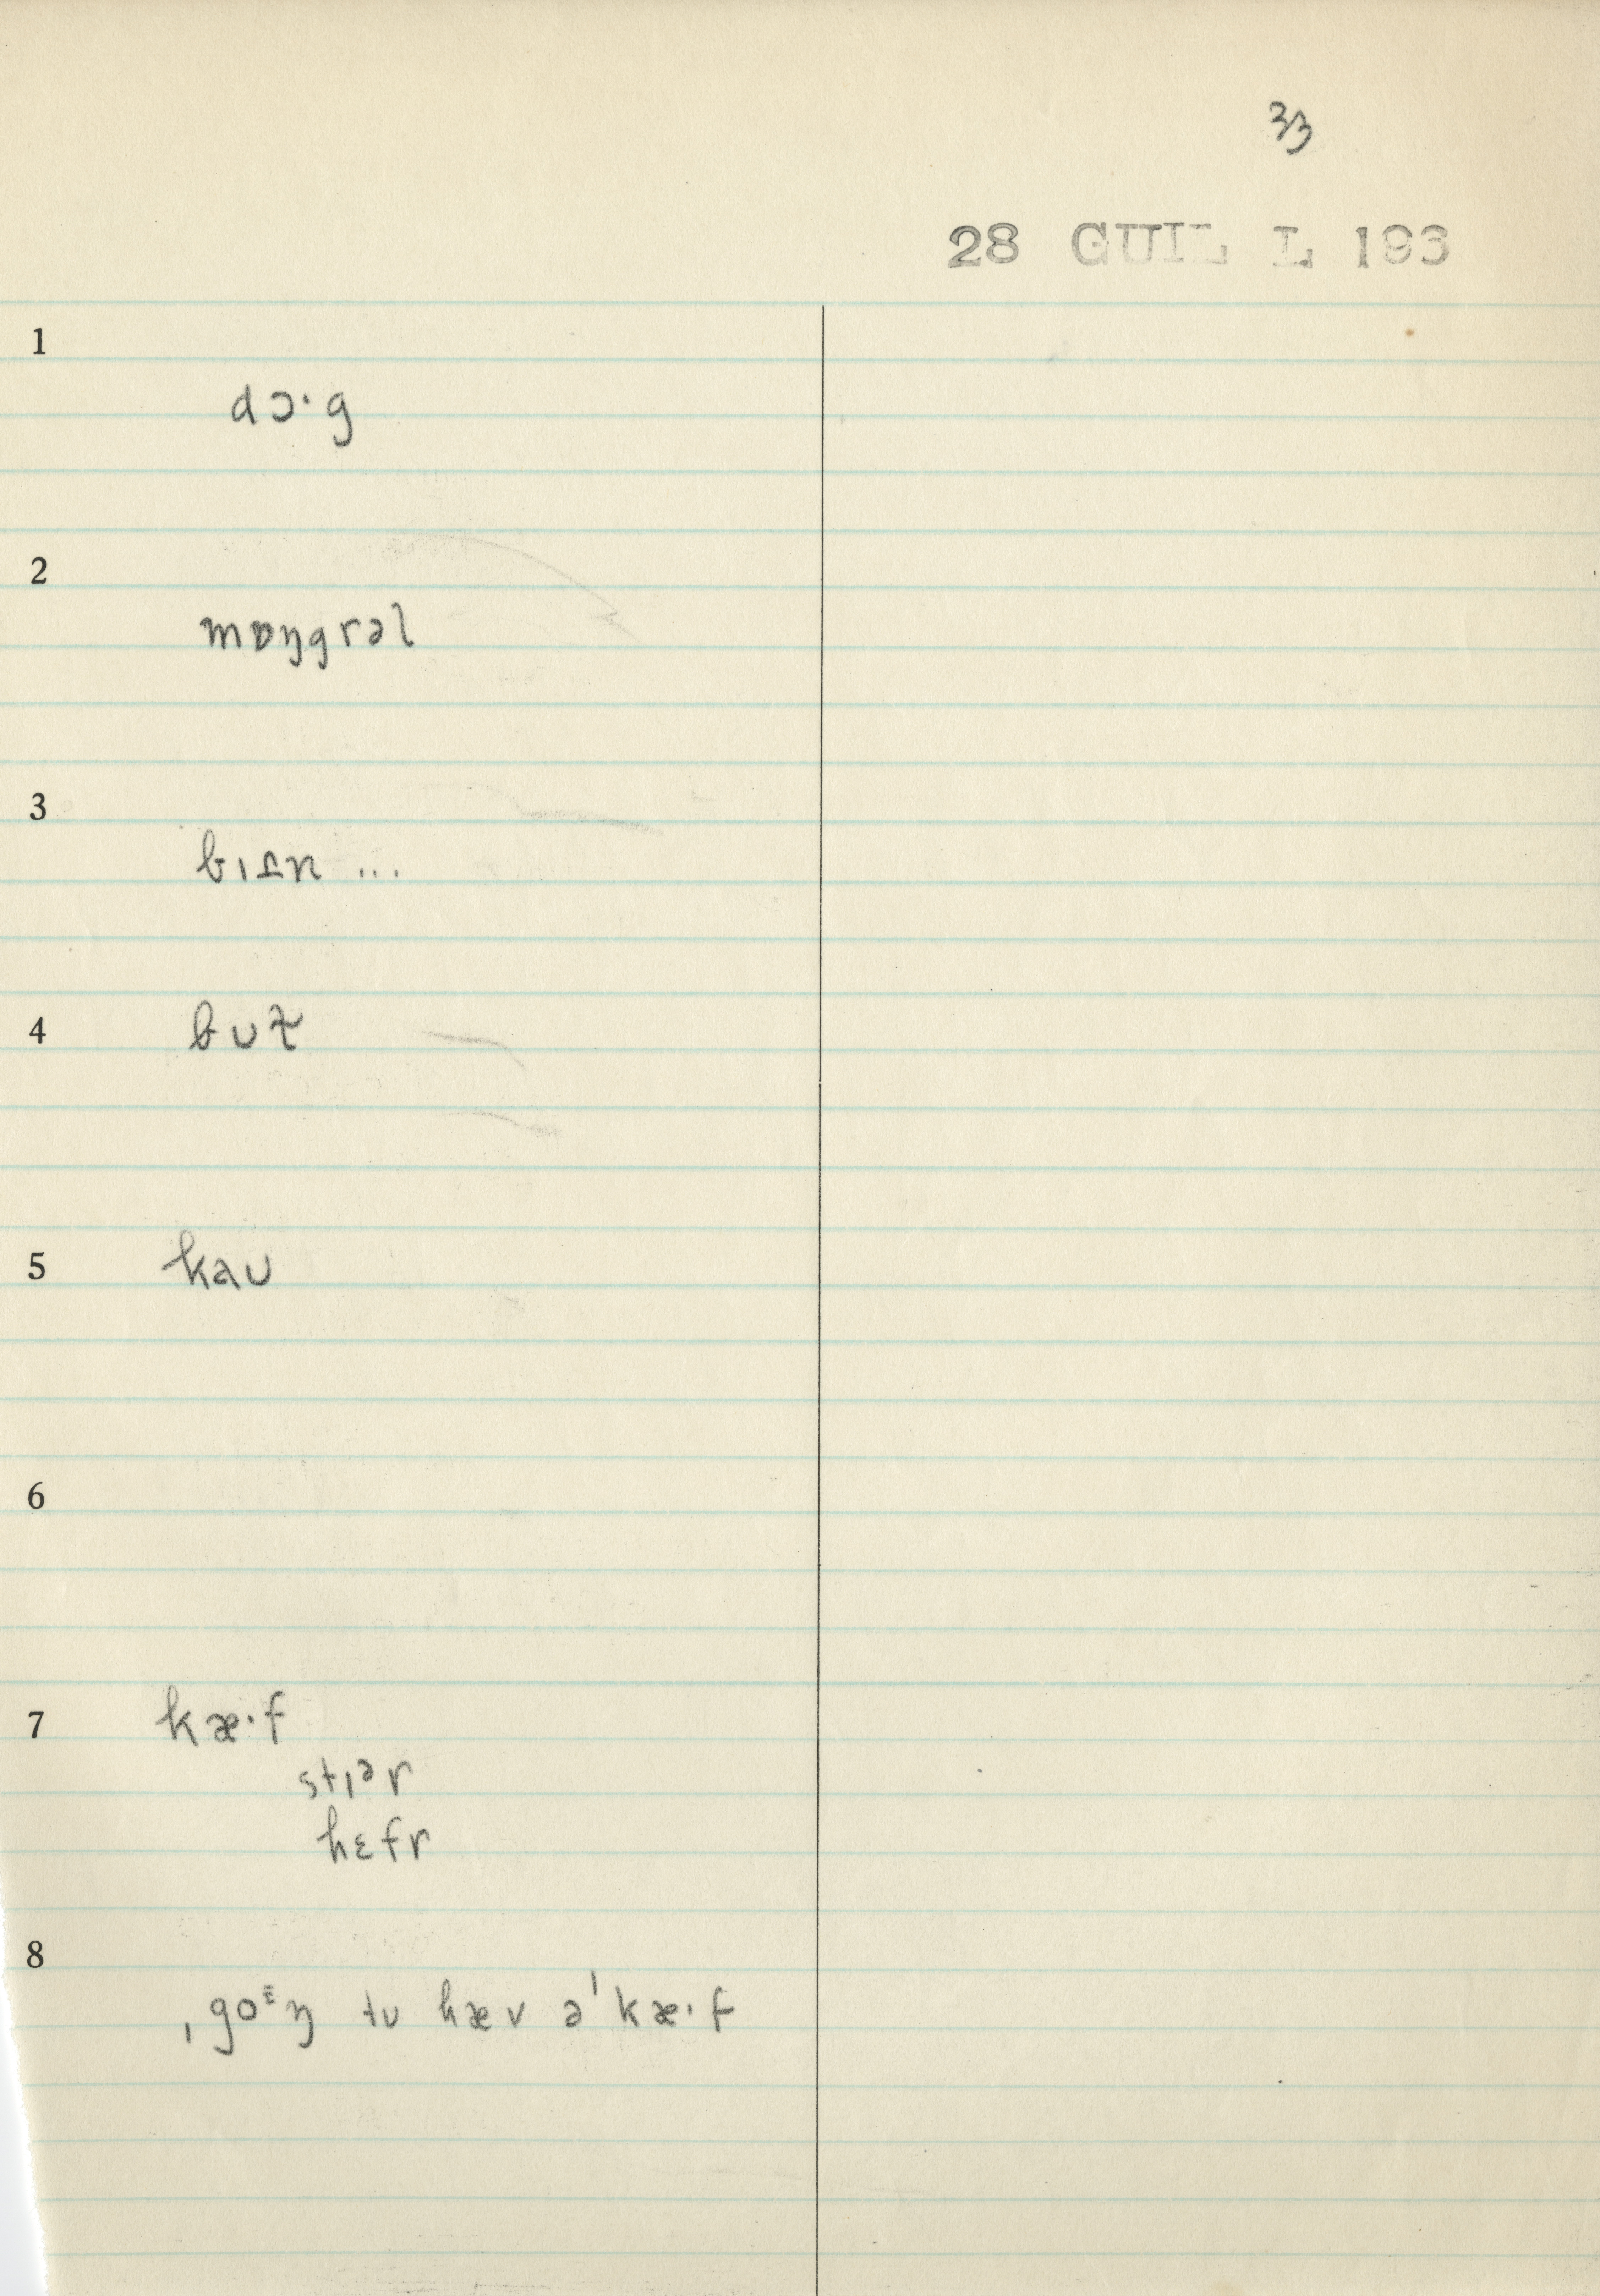 33
28 GUIL L 193
1
dɔ·g
2
mɒŋgrəl
3
4
5
kaʊ
6
7
kæ·f
stɪər
hɛfr
8
ˌgoᵋŋ tʊ hæv ə ˈkæ·f